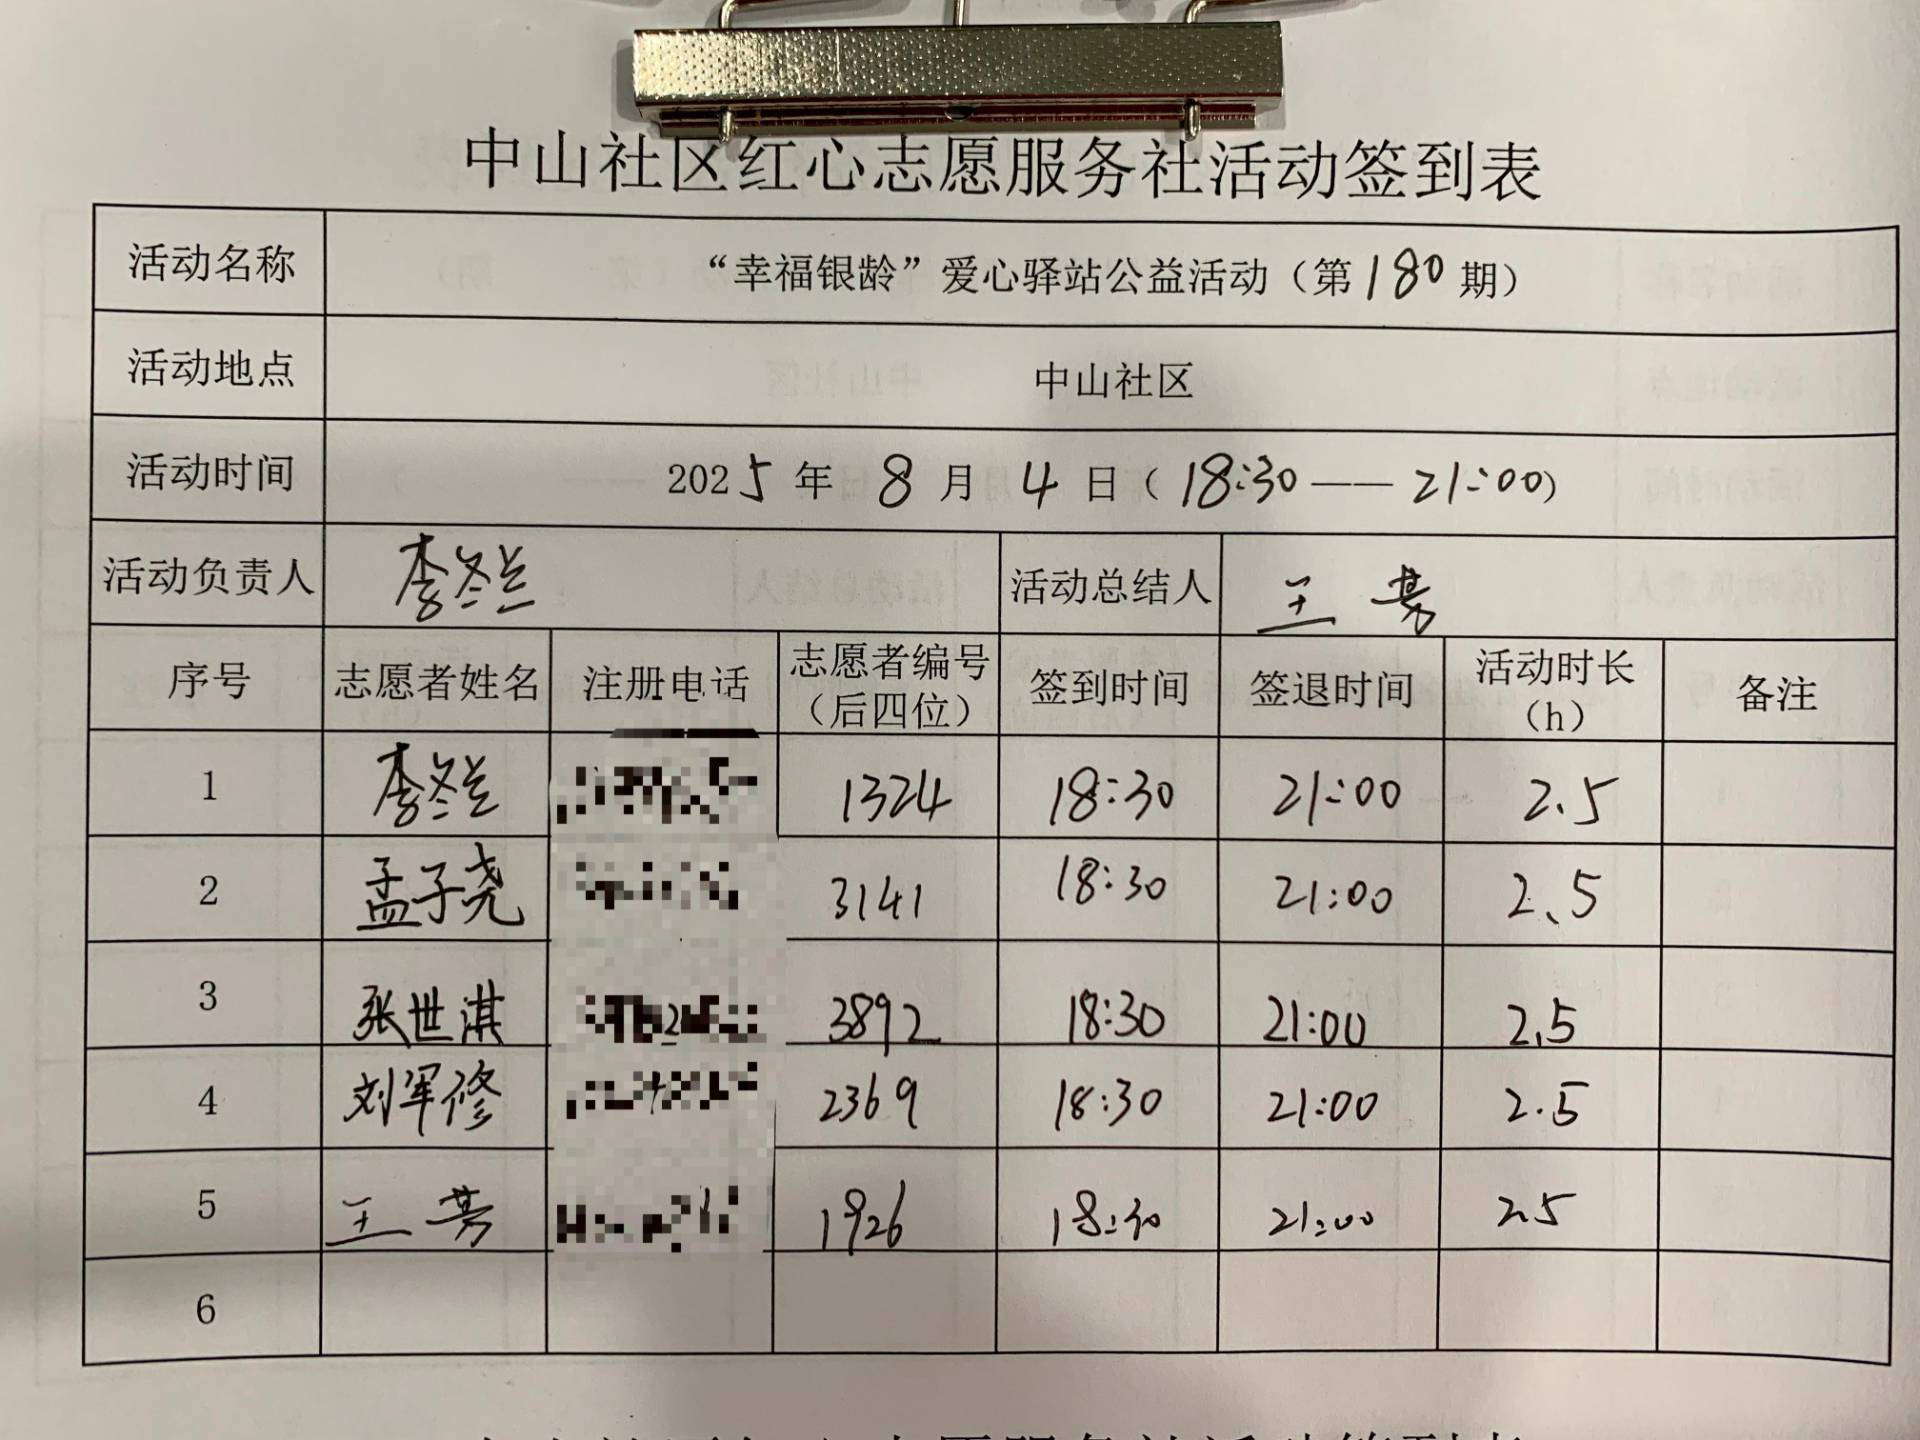 中山社区红心志愿服务社活动签到表
活动名称 “幸福银龄”爱心驿站公益活动（第180期）
活动地点 中山社区
活动时间 2025年8月4日（18:30——21:00）
活动负责人 李冬兰 活动总结人 王芳
序号 志愿者姓名 注册电话 志愿者编号（后四位） 签到时间 签退时间 活动时长（h） 备注
1 李冬兰 1324 18:30 21:00 2.5
2 孟子尧 3141 18:30 21:00 2.5
3 张世淇 3892 18:30 21:00 2.5
4 刘军修 2369 18:30 21:00 2.5
5 王芳 1926 18:30 21:00 2.5
6